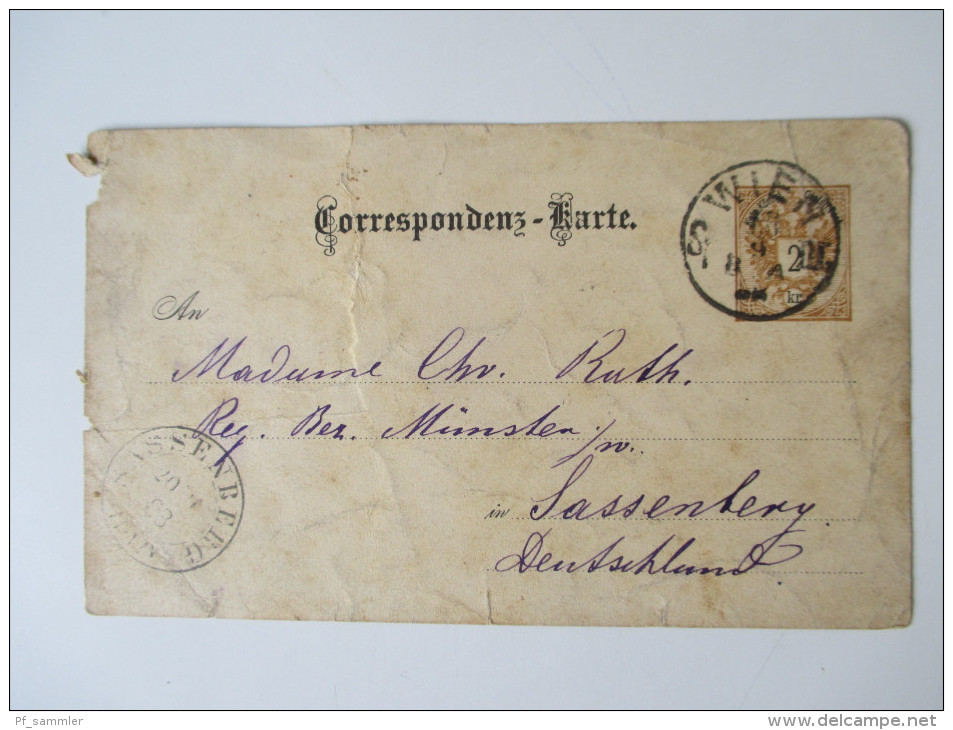 Correspondenz-Karte.
WIEN
2
kr.
An
Madame Chr. Ruth.
Reg. Bez. Münster i/w.
in Sassenberg
Deutschland
SASSENBERG
20
83
Pf_sammler
www.delcampe.net